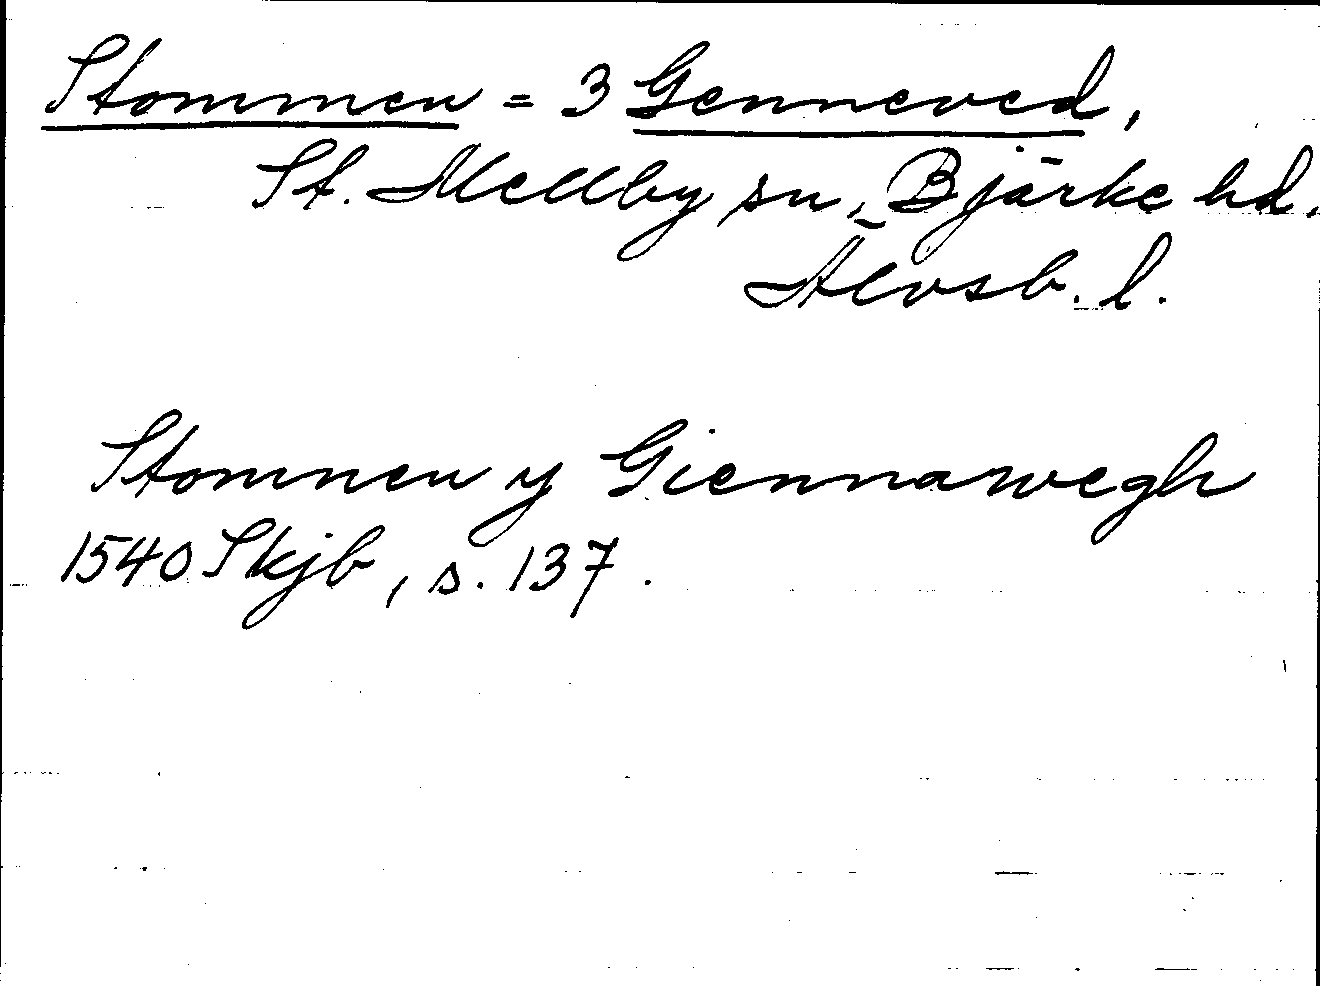 Stommen = 3 Genneved,
St. Mellby sn, Bjärke hd.
Älvsb. l.
Stomnen y Giennarwegh
1540 Skjb, s. 137.